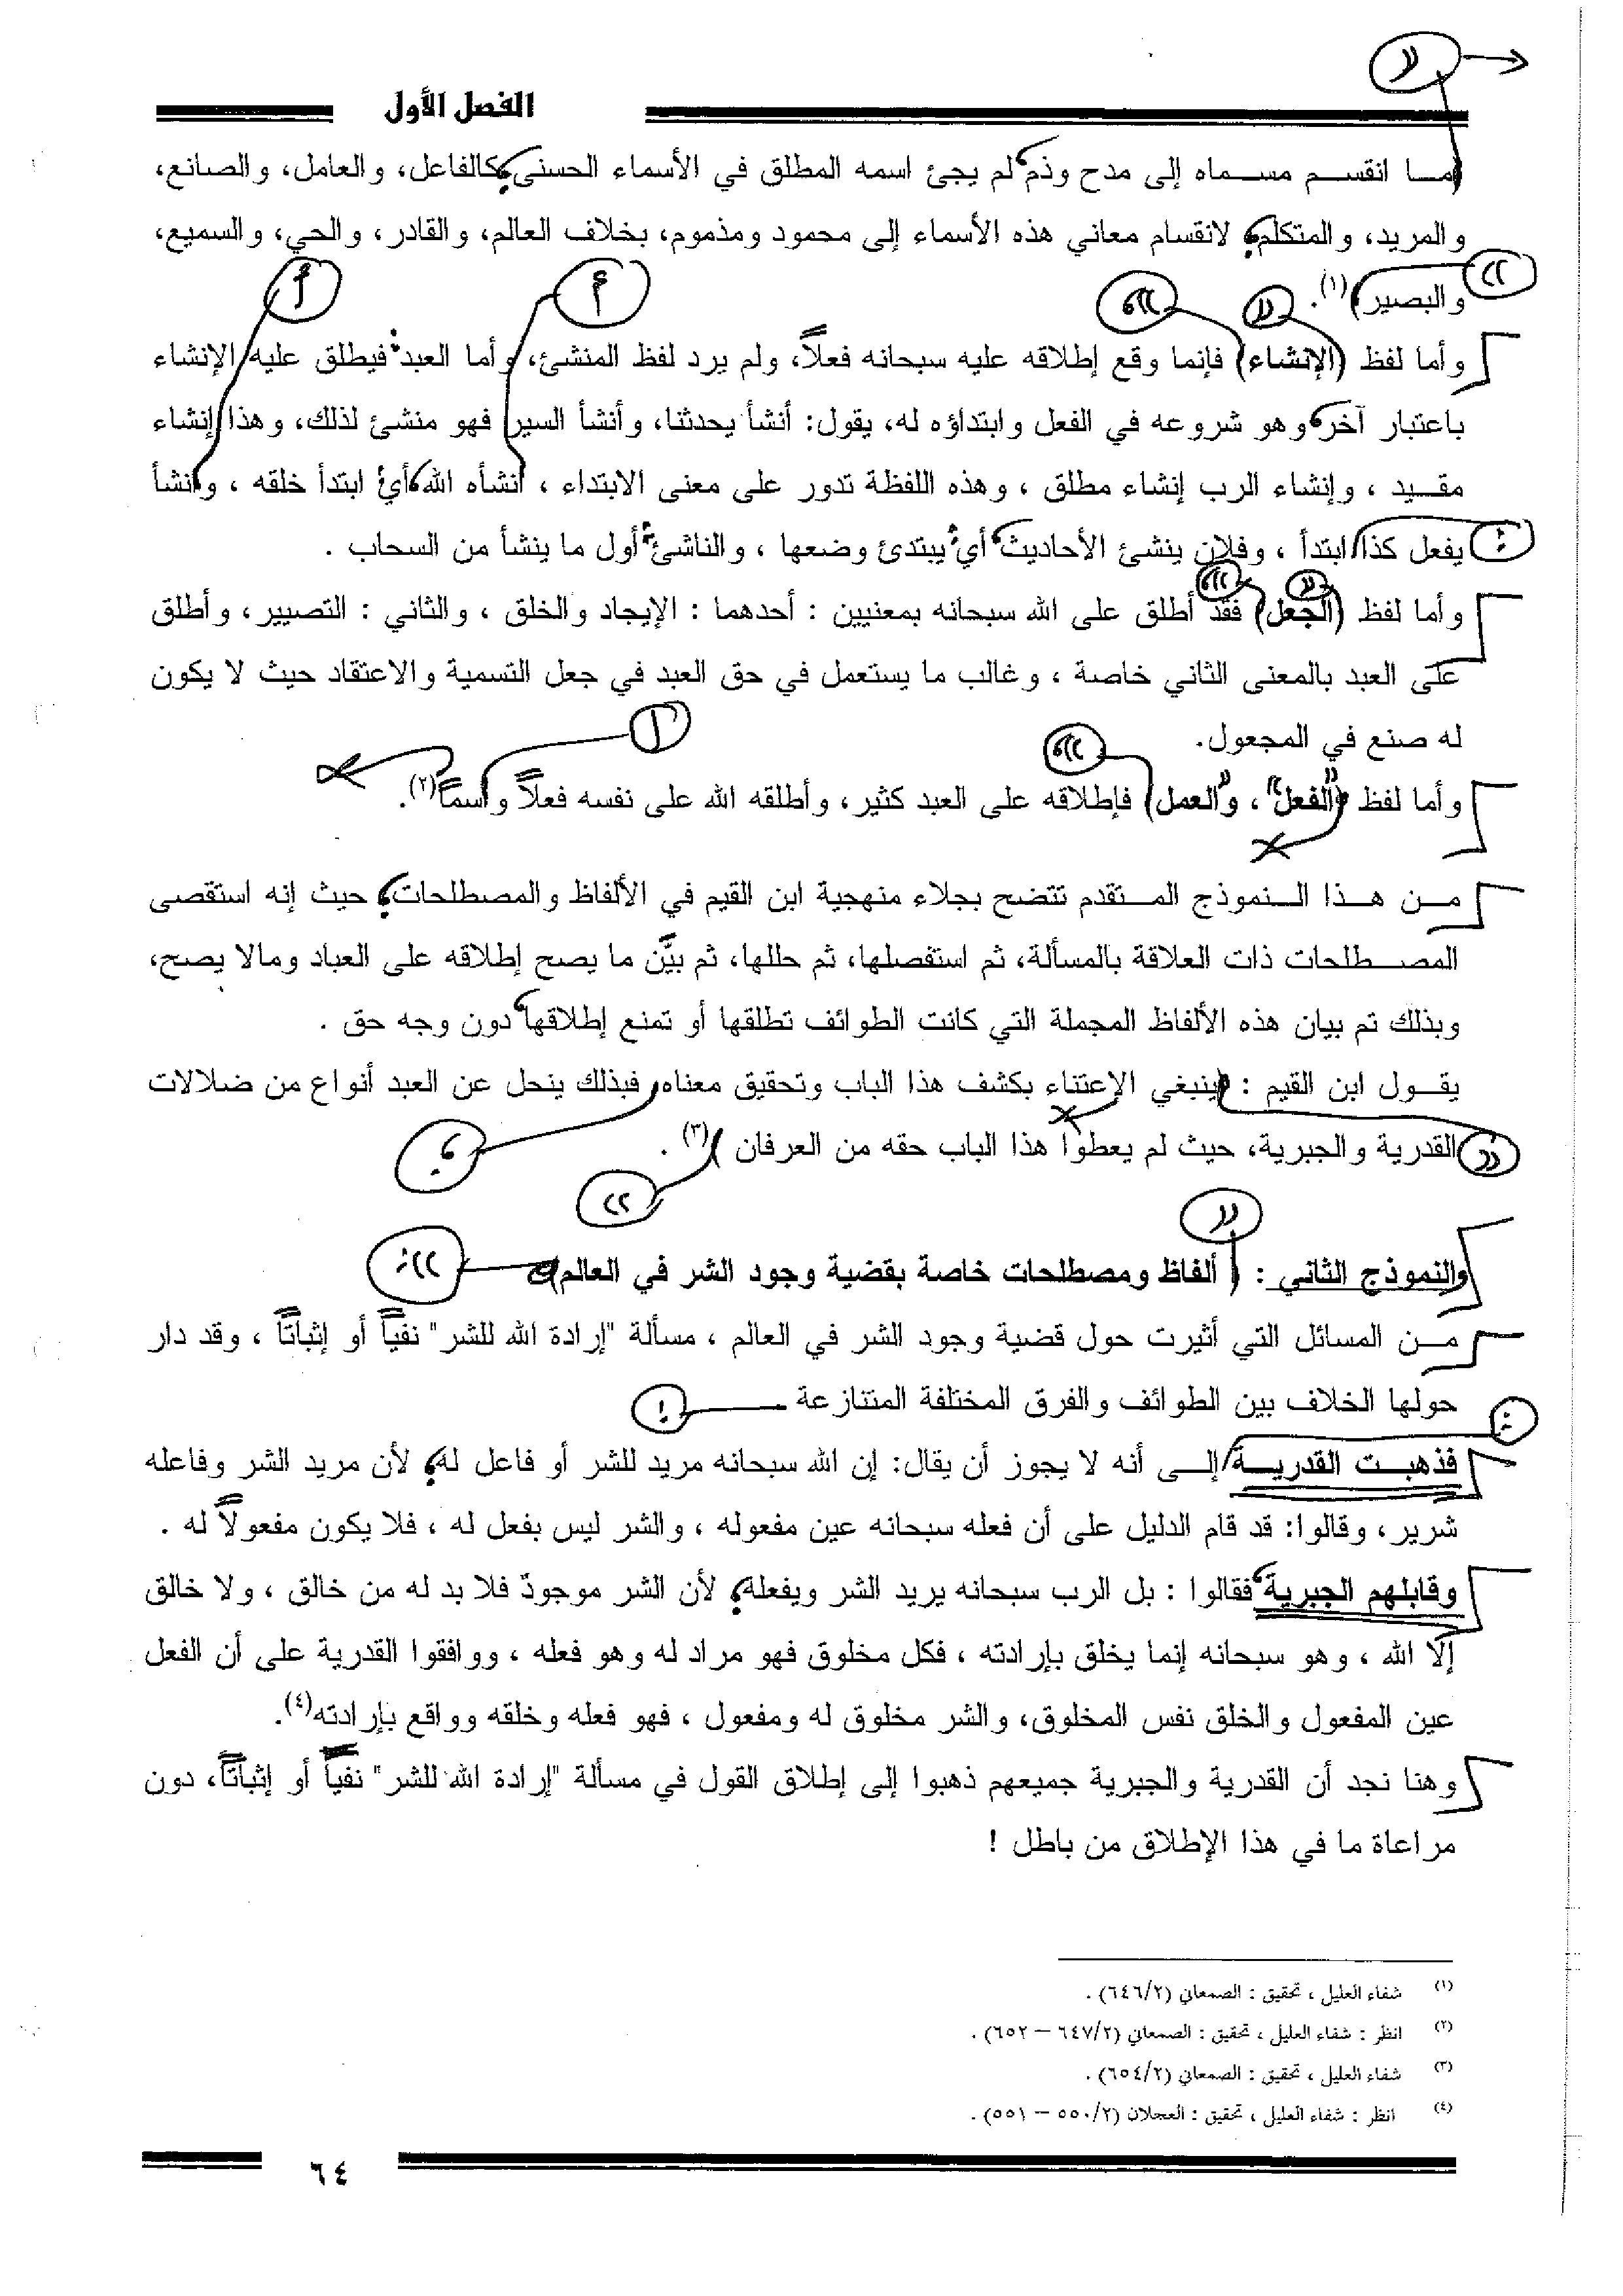 الفصل الأول
(ما انقسم مسماه إلى مدح وذم لم يجئ اسمه المطلق في الأسماء الحسنى كالفاعل، والعامل، والصانع،
والمريد، والمتكلم؛ لانقسام معاني هذه الأسماء إلى محمود ومذموم، بخلاف العالم، والقادر، والحي، والسميع،
والبصير)(١).
وأما لفظ (الإنشاء) فإنما وقع إطلاقه عليه سبحانه فعلاً، ولم يرد لفظ المنشئ، وأما العبد فيطلق عليه الإنشاء
باعتبار آخر، وهو شروعه في الفعل وابتداؤه له، يقول: أنشأ يحدثنا، وأنشأ السير فهو منشئ لذلك، وهذا إنشاء
مقيد ، وإنشاء الرب إنشاء مطلق ، وهذه اللفظة تدور على معنى الابتداء ، أنشأه الله، أي ابتدأ خلقه ، وأنشأ
يفعل كذا: ابتدأ ، وفلان ينشئ الأحاديث، أي: يبتدئ وضعها ، والناشئ: أول ما ينشأ من السحاب .
وأما لفظ (الجعل) فقد أطلق على الله سبحانه بمعنيين : أحدهما : الإيجاد والخلق ، والثاني : التصيير، وأطلق
على العبد بالمعنى الثاني خاصة ، وغالب ما يستعمل في حق العبد في جعل التسمية والاعتقاد حيث لا يكون
له صنع في المجعول.
وأما لفظ (الفعل ، والعمل) فإطلاقه على العبد كثير، وأطلقه الله على نفسه فعلاً واسماً(٢).
من هذا النموذج المتقدم تتضح بجلاء منهجية ابن القيم في الألفاظ والمصطلحات؛ حيث إنه استقصى
المصطلحات ذات العلاقة بالمسألة، ثم استفصلها، ثم حللها، ثم بيَّن ما يصح إطلاقه على العباد ومالا يصح،
وبذلك تم بيان هذه الألفاظ المجملة التي كانت الطوائف تطلقها أو تمنع إطلاقها، دون وجه حق .
يقول ابن القيم : (ينبغي الإعتناء بكشف هذا الباب وتحقيق معناه، فبذلك ينحل عن العبد أنواع من ضلالات
القدرية والجبرية، حيث لم يعطوا هذا الباب حقه من العرفان )(٣) .
والنموذج الثاني : ( ألفاظ ومصطلحات خاصة بقضية وجود الشر في العالم)
من المسائل التي أثيرت حول قضية وجود الشر في العالم ، مسألة "إرادة الله للشر" نفياً أو إثباتاً ، وقد دار
حولها الخلاف بين الطوائف والفرق المختلفة المتنازعة
فذهبت القدرية إلى أنه لا يجوز أن يقال: إن الله سبحانه مريد للشر أو فاعل له؛ لأن مريد الشر وفاعله
شرير، وقالوا: قد قام الدليل على أن فعله سبحانه عين مفعوله ، والشر ليس بفعل له ، فلا يكون مفعولاً له .
وقابلهم الجبرية، فقالوا : بل الرب سبحانه يريد الشر ويفعله؛ لأن الشر موجود فلا بد له من خالق ، ولا خالق
إلا الله ، وهو سبحانه إنما يخلق بإرادته ، فكل مخلوق فهو مراد له وهو فعله ، ووافقوا القدرية على أن الفعل
عين المفعول والخلق نفس المخلوق، والشر مخلوق له ومفعول ، فهو فعله وخلقه وواقع بإرادته(٤).
وهنا نجد أن القدرية والجبرية جميعهم ذهبوا إلى إطلاق القول في مسألة "إرادة الله للشر" نفياً أو إثباتاً، دون
مراعاة ما في هذا الإطلاق من باطل !
(١) شفاء العليل ، تحقيق : الصمعاني (٦٤٦/٢) .
(٢) انظر : شفاء العليل ، تحقيق : الصمعاني (٦٤٧/٢ – ٦٥٢) .
(٣) شفاء العليل ، تحقيق : الصمعاني (٦٥٤/٢) .
(٤) انظر : شفاء العليل ، تحقيق : العجلان (٥٥٠/٢ – ٥٥١) .
٦٤